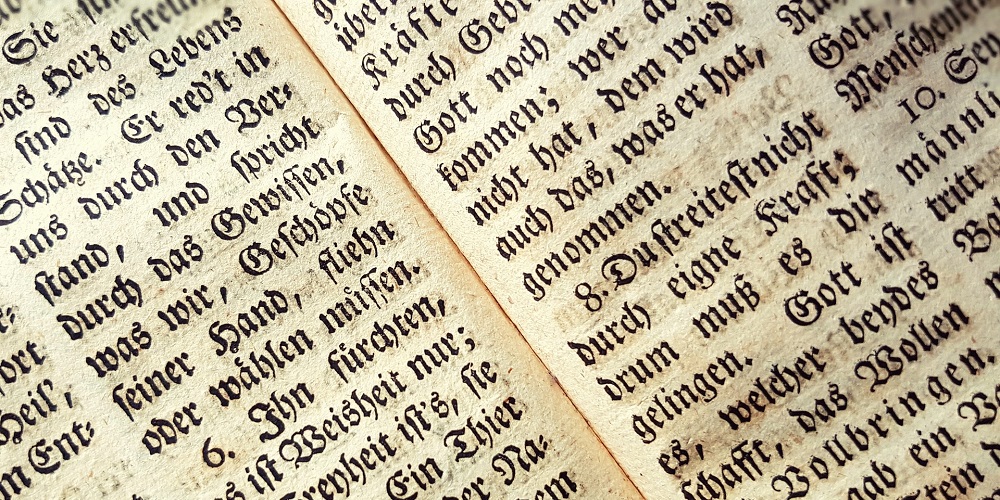 Sie
das Herz erfreun
sind des Lebens
Schätze. Er red't in
uns durch den Ver-
stand, und spricht
durch das Gewissen,
was wir, Geschöpfe
seiner Hand, fliehn
oder wählen müssen.
6. Ihn fürchten,
ist Weisheit nur;
Freyheit ist's, sie
Ein Thier
der Na-
dem
ort
Heil',
Ent-
Kräfte
durch Gebr
Gott noch meh
kommen; wer ab
nicht hat, dem wird
auch das, was er hat,
genommen.
8. Du streitest nicht
durch eigne Kraft;
drum muß es dir
gelingen. Gott ist
es, welcher beydes
schafft, das Wollen
Vollbringen.
gab ein
Gott,
Menschen
10.
männli
tritt